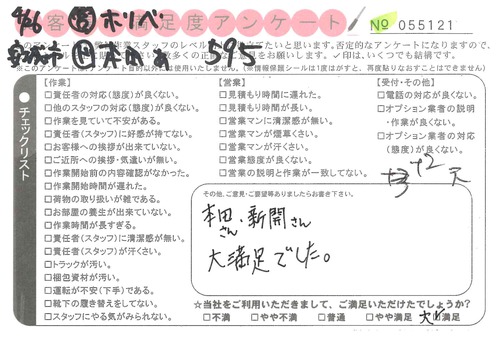 4/6
お客様満足度アンケート
№ 055121
ホリベ
安城市
595
【作業】
□責任者の対応(態度)が良くない。
□他のスタッフの対応(態度)が良くない。
□作業を見ていて不安がある。
□責任者(スタッフ)に好感が持てない。
□お客様への挨拶が出来ていない。
□ご近所への挨拶・気遣いが無い。
□作業開始前の内容確認がなかった。
□作業開始時間が遅れた。
□荷物の取り扱いが雑である。
□お部屋の養生が出来ていない。
□作業時間が長すぎる。
□責任者(スタッフ)に清潔感が無い。
□責任者(スタッフ)が汗くさい。
□トラックが汚い。
□梱包資材が汚い。
□運転が不安(下手)である。
□靴下の履き替えをしてない。
□スタッフにやる気がみられない。
【営業】
□見積もり時間に遅れた。
□見積もり時間が長い。
□営業マンに清潔感が無い。
□営業マンが煙草くさい。
□営業マンが汗くさい。
□営業態度が良くない。
□営業の説明と作業が一致してない。
【受付・その他】
□電話の対応が良くない。
□オプション業者の説明
・作業が良くない。
□オプション業者の対応
(態度)が良くない。
チェックリスト
その他、ご意見・ご要望等ありましたらお書き下さい。
本田さん・新開さん
大満足でした。
☆当社をご利用いただきまして、ご満足いただけたでしょうか?
□不満 □やや不満 □普通 □やや満足 大満足